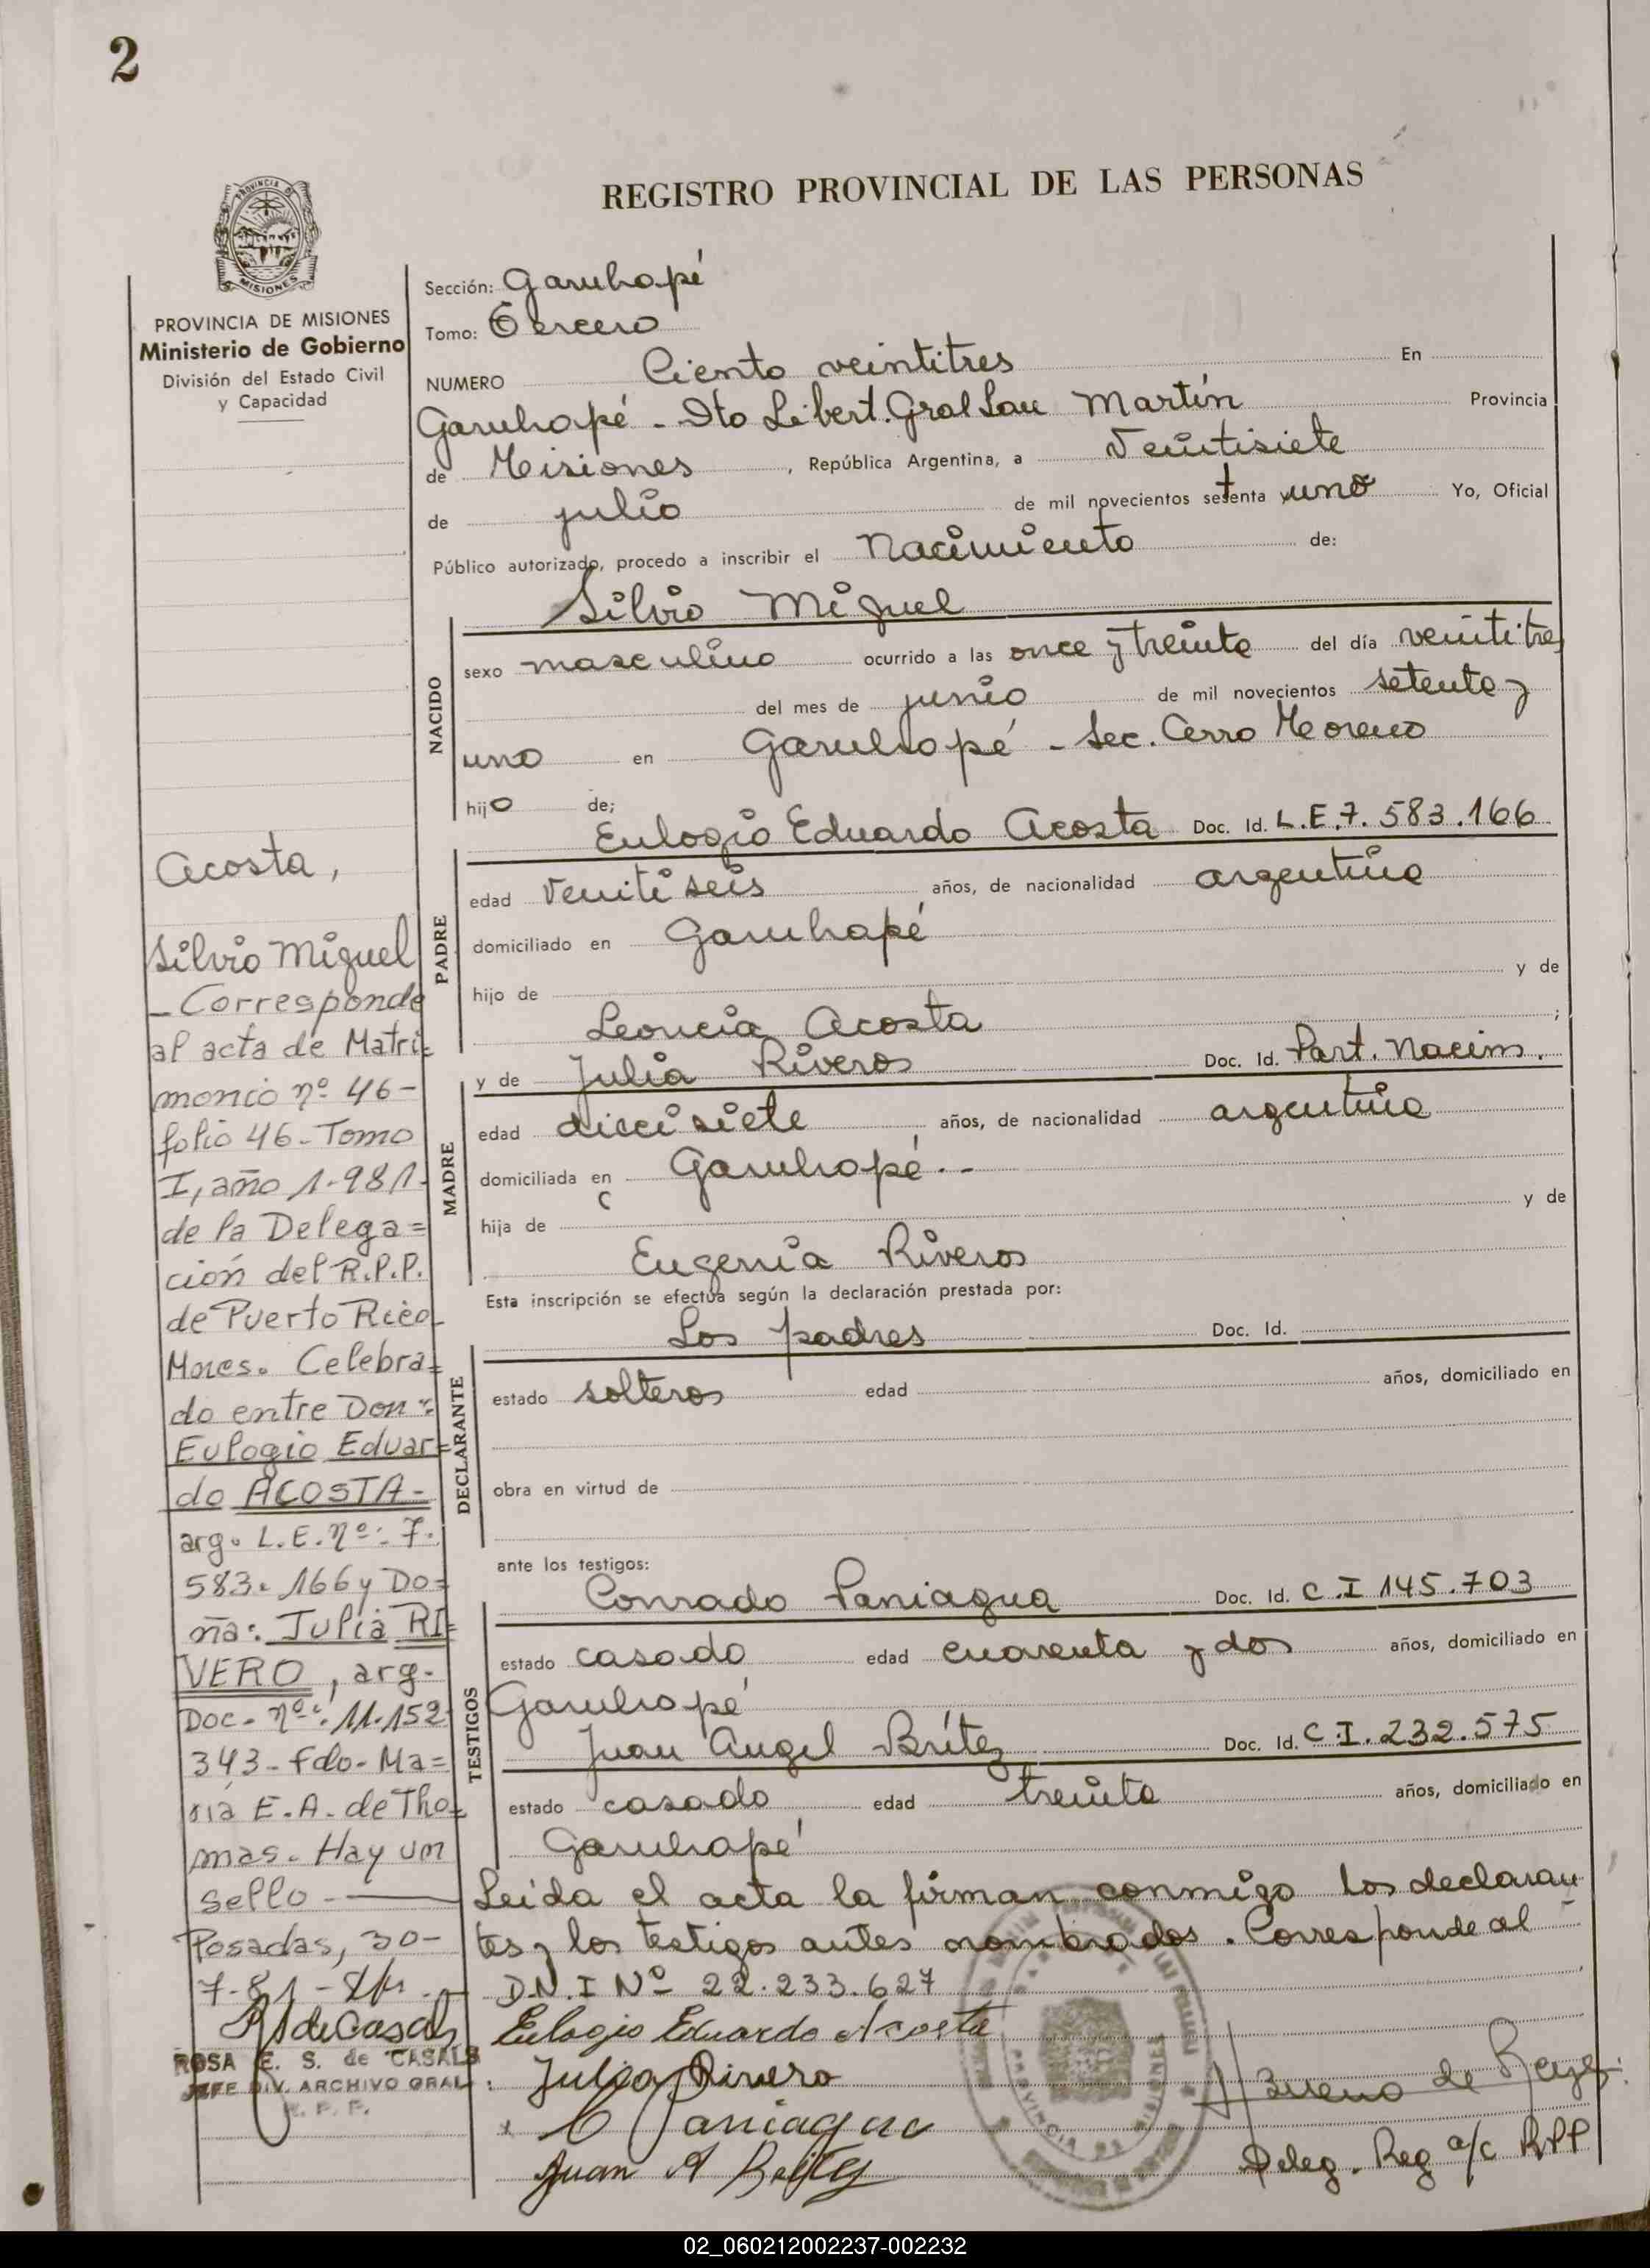 2
REGISTRO PROVINCIAL DE LAS PERSONAS
PROVINCIA DE
MISIONES
PROVINCIA DE MISIONES
Ministerio de Gobierno
División del Estado Civil
y Capacidad
Sección: Garuhapé
Tomo: Tercero
NUMERO Ciento veintitres En
Garuhapé - Dto Libert. Gral San Martín Provincia
de Misiones , República Argentina, a Veintisiete
de julio de mil novecientos setenta y uno Yo, Oficial
Público autorizado, procedo a inscribir el Nacimiento de:
NACIDO
Silvio Miguel
sexo masculino ocurrido a las once y treinta del día veintitres
del mes de junio de mil novecientos setenta y
uno en Garuhapé - Sec. Cerro Moreno
hijo de;
PADRE
Eulogio Eduardo Acosta Doc. Id. L.E.7.583.166
edad Veintiseis años, de nacionalidad argentina
domiciliado en Garuhapé
hijo de y de
Leoncia Acosta ;
MADRE
y de Julia Riveros Doc. Id. Part. Nacim.
edad diecisiete años, de nacionalidad argentina
domiciliada en Garuhapé.--
hija de y de
Eugenia Riveros
Esta inscripción se efectúa según la declaración prestada por:
DECLARANTE
Los padres Doc. Id.
estado solteros edad años, domiciliado en
obra en virtud de
ante los testigos:
TESTIGOS
Conrado Paniagua Doc. Id. C.I 145.703
estado casado edad cuarenta y dos años, domiciliado en
Garuhapé
Juan Angel Brítez Doc. Id. C.I. 232.575
estado casado edad treinta años, domiciliado en
Garuhapé
Leída el acta la firman conmigo los declaran
tes y los testigos antes nombrados. Corresponde al
D.N.I Nº 22.233.627
Eulogio Eduardo Acosta
Julia Rivero
C Paniagua
Juan A Britez
Deleg. Reg a/c RPP
PROVINCIA DE MISIONES
Acosta,
Silvio Miguel
- Corresponde
al acta de Matri=
monio nº 46-
folio 46- Tomo
I, año 1.981-
de la Delega=
ción del R.P.P.
de Puerto Rico-
Mnes. Celebra=
do entre Don:
Eulogio Eduar=
do ACOSTA-
arg. L.E. nº: 7.
583.166 y Do=
ña: Julia RI=
VERO, arg-
Doc- nº: 11.152
343- Fdo- Ma=
ría E.A. de Tho=
mas. Hay un
sello -
Posadas, 30-
7-81-
R S de Casals
ROSA E. S. de CASALS
JEFE DIV. ARCHIVO GRAL.
R. P. P.
02_060212002237-002232